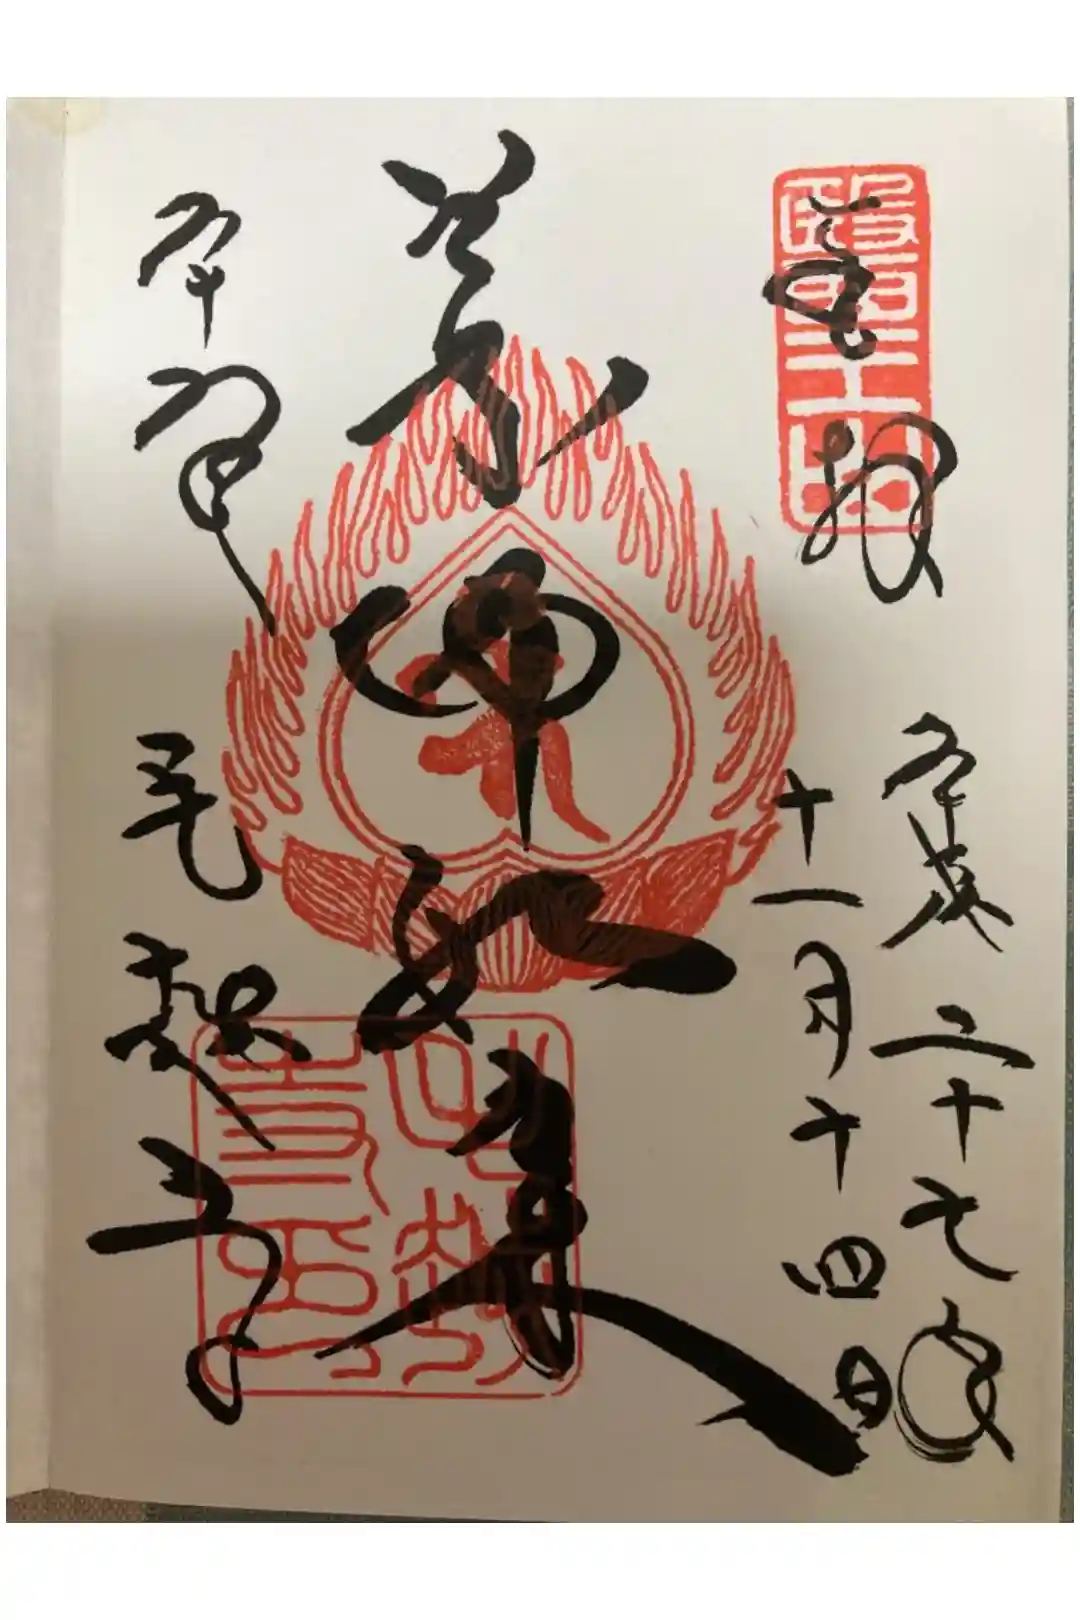 奉拝
醫王山
平成二十七年
十一月十四日
薬師如来
平泉
毛越寺
毛越寺印